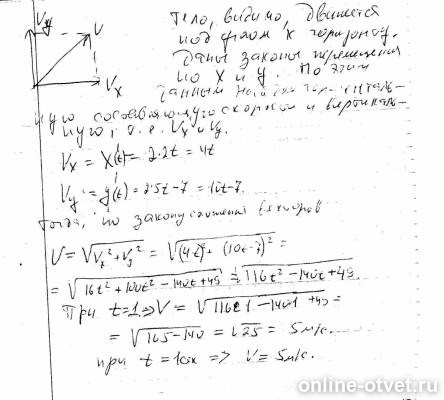 Vy V
Vx
Тело, видимо, движется
под углом к горизонту.
Даны законы перемещения
по X и y. По этим
данным
скорости и
Vx и Vy.
Vx = X(t)' = 2·2t = 4t
Vy = y(t)' = 2·5t - 7 = 10t - 7.
Тогда, по закону сложения векторов
V = √Vx² + Vy² = √(4t)² + (10t-7)² =
= √16t² + 100t² - 140t + 49 = √116t² - 140t + 49.
При t=1 => V = √116·1 - 140·1 + 49 =
= √165-140 = √25 = 5м/с.
при t = => V = 5м/с.
online-otvet.ru